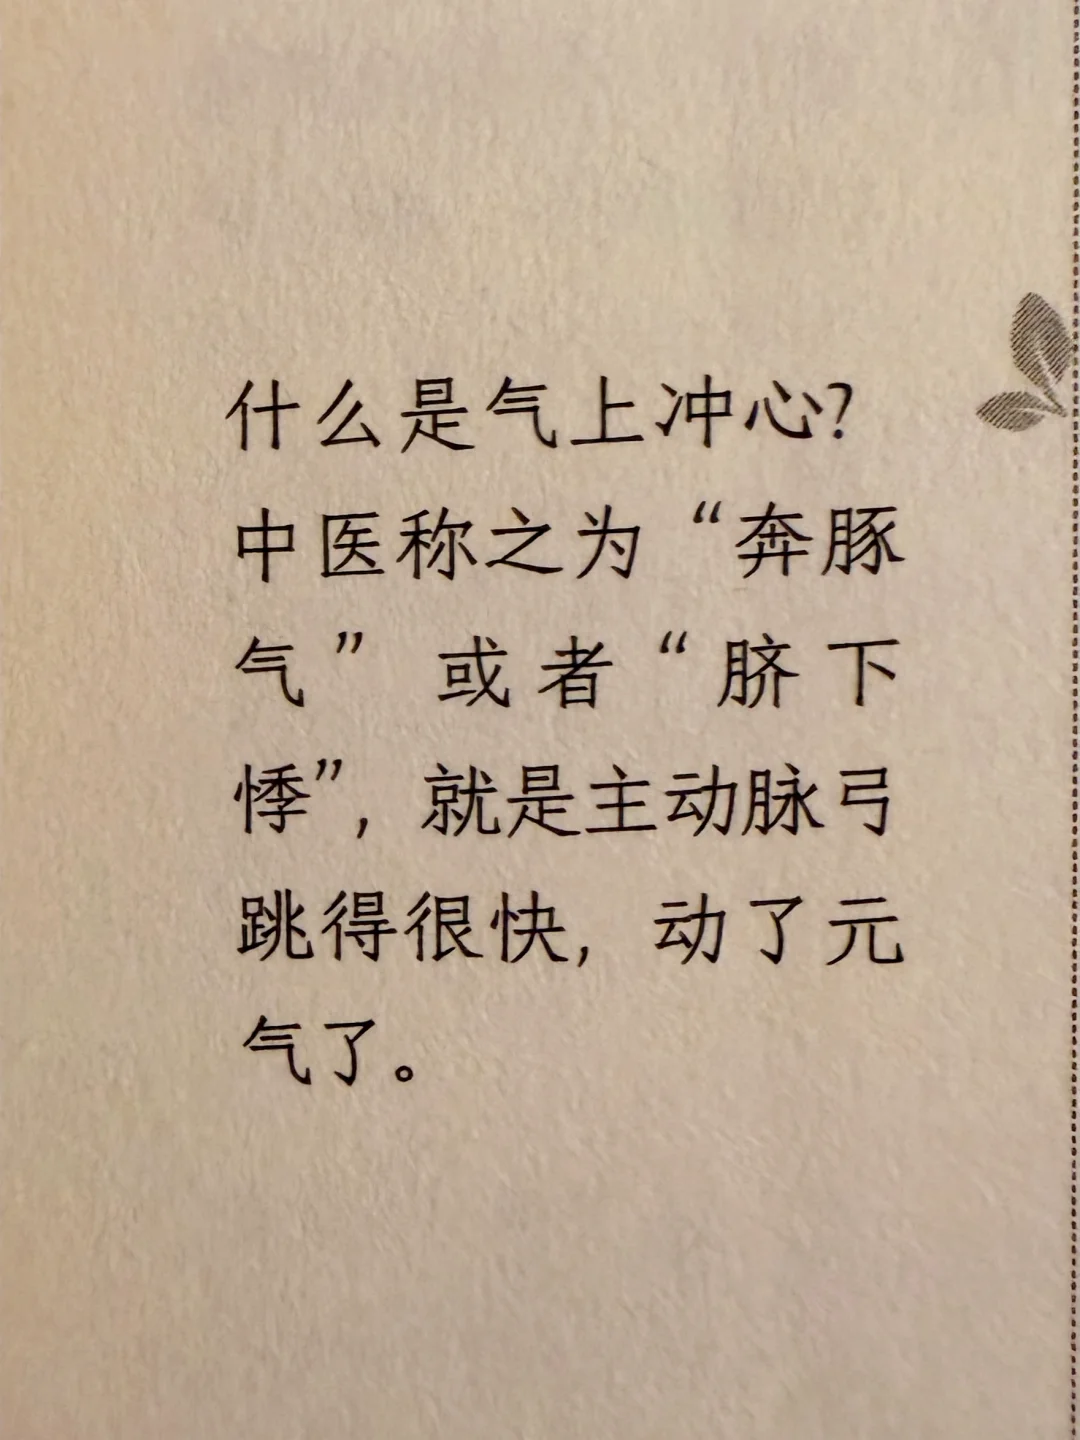 什么是气上冲心?
中医称之为“奔豚
气”或者“脐下
悸”,就是主动脉弓
跳得很快,动了元
气了。